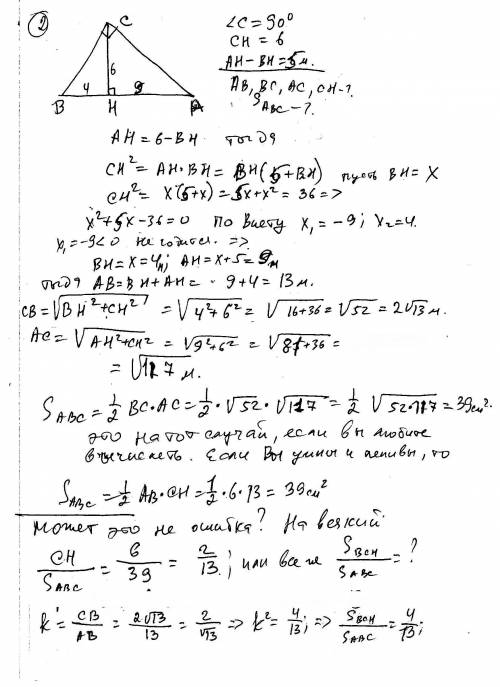 ② C
∠C = 90°
CH = 6
AH − BH = 5м.
AB, BC, AC, CH − ?
S_ABC − ?
6
4 9
B H A
AH = 6 − BH тогда
CH² = AH·BH = BH(5+BH) пусть BH = X
CH² = X(5+x) = 5x+x² = 36 =>
x²+5x−36=0 По Виету x₁ = −9; x₂=4.
x₁=−9<0 не годится. =>
BH=X=4м; AH=X+5=9м
тогда AB=BH+AH= 9+4=13м.
CB=√(BH²+CH²) = √(4²+6²) = √(16+36) = √52 = 2√13 м.
AC=√(AH²+CH²) = √(9²+6²) = √(81+36) =
= √117 м.
S_ABC = 1/2 BC·AC = 1/2·√52·√117 = 1/2 √(52·117) = 39см².
это на тот случай, если вы любите
вычислять. Если Вы умны и ленивы, то
S_ABC = 1/2 AB·CH = 1/2·6·13 = 39см²
Может это не ошибка? На всякий
CH/S_ABC = 6/39 = 2/13; или все же S_BCH/S_ABC = ?
k = CB/AB = 2√13/13 = 2/√13 => k² = 4/13; => S_BCH/S_ABC = 4/13;